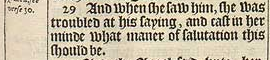 29 And when she saw him, she was
troubled at his saying, and cast in her
minde what maner of salutation this
should be.
verse 30.